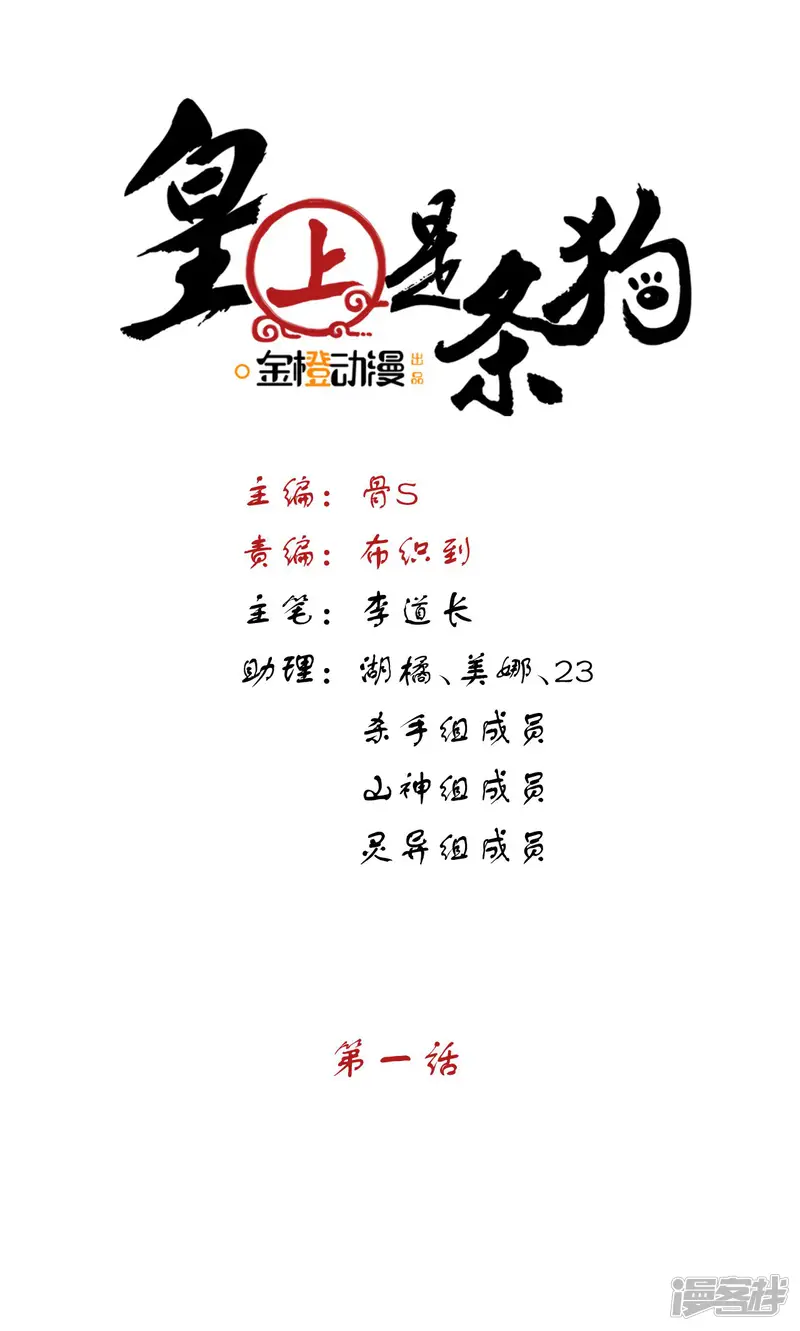 皇上是条狗
金橙动漫出品
主编：骨S
责编：布织到
主笔：李道长
助理：湖橘、美娜、23
杀手组成员
山神组成员
灵异组成员
第一话
漫客栈